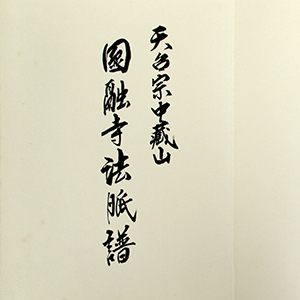 天台宗中藏山
圓融寺法脈譜